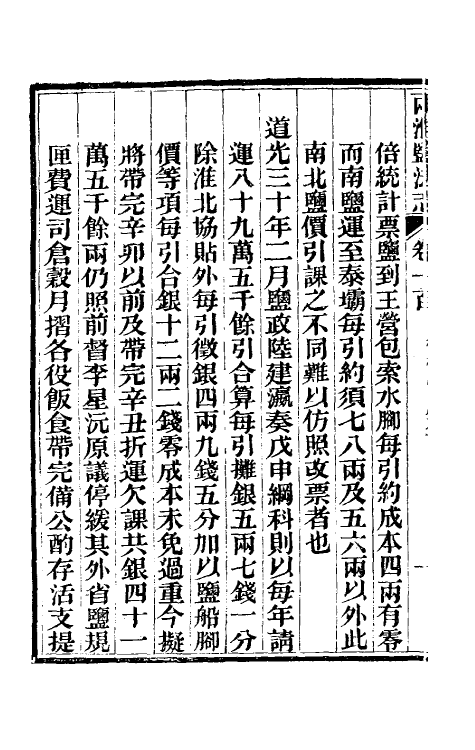 兩淮鹽法志 卷一百
倍統計票鹽到王營包索水腳每引約成本四兩有零
而南鹽運至泰壩每引約須七八兩及五六兩以外此
南北鹽價引課之不同難以仿照改票者也
道光三十年二月鹽政陸建瀛奏戊申綱科則以每年請
運八十九萬五千餘引合算每引攤銀五兩七錢一分
除淮北協貼外每引徵銀四兩九錢五分加以鹽船腳
價等項每引合銀十二兩二錢零成本未免過重今擬
將帶完辛卯以前及帶完辛丑折運欠課共銀四十一
萬五千餘兩仍照前督李星沅原議停緩其外省鹽規
匣費運司倉穀月摺各役飯食帶完備公酌存活支提